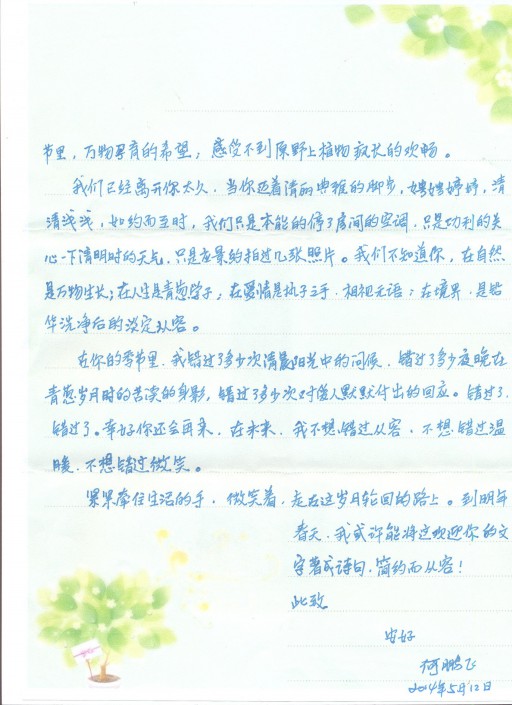 节里，万物孕育的希望；感受不到原野上植物疯长的欢畅。
我们已经离开你太久，当你迈着清丽典雅的脚步，娉娉婷婷，清
清浅浅，如约而至时，我们只是本能的停了房间的空调，只是功利的关
心一下清明时的天气，只是应景的拍过几张照片。我们不知道你，在自然
是万物生长；在人生是青葱学子；在爱情是执子之手，相视无语；在境界，是铅
华洗净后的淡定从容。
在你的季节里，我错过了多少次清晨阳光中的问候，错过了多少夜晚在
青葱岁月时的苦读的身影，错过了多少次对他人默默付出的回应。错过了，
错过了。幸好你还会再来，在未来，我不想错过从容，不想错过温
暖，不想错过微笑。
紧紧牵住生活的手，微笑着，走在这岁月轮回的路上。到明年
春天，我或许能将这欢迎你的文
字著成诗句，简约而从容！
此致
安好
何鹏飞
2014年5月12日